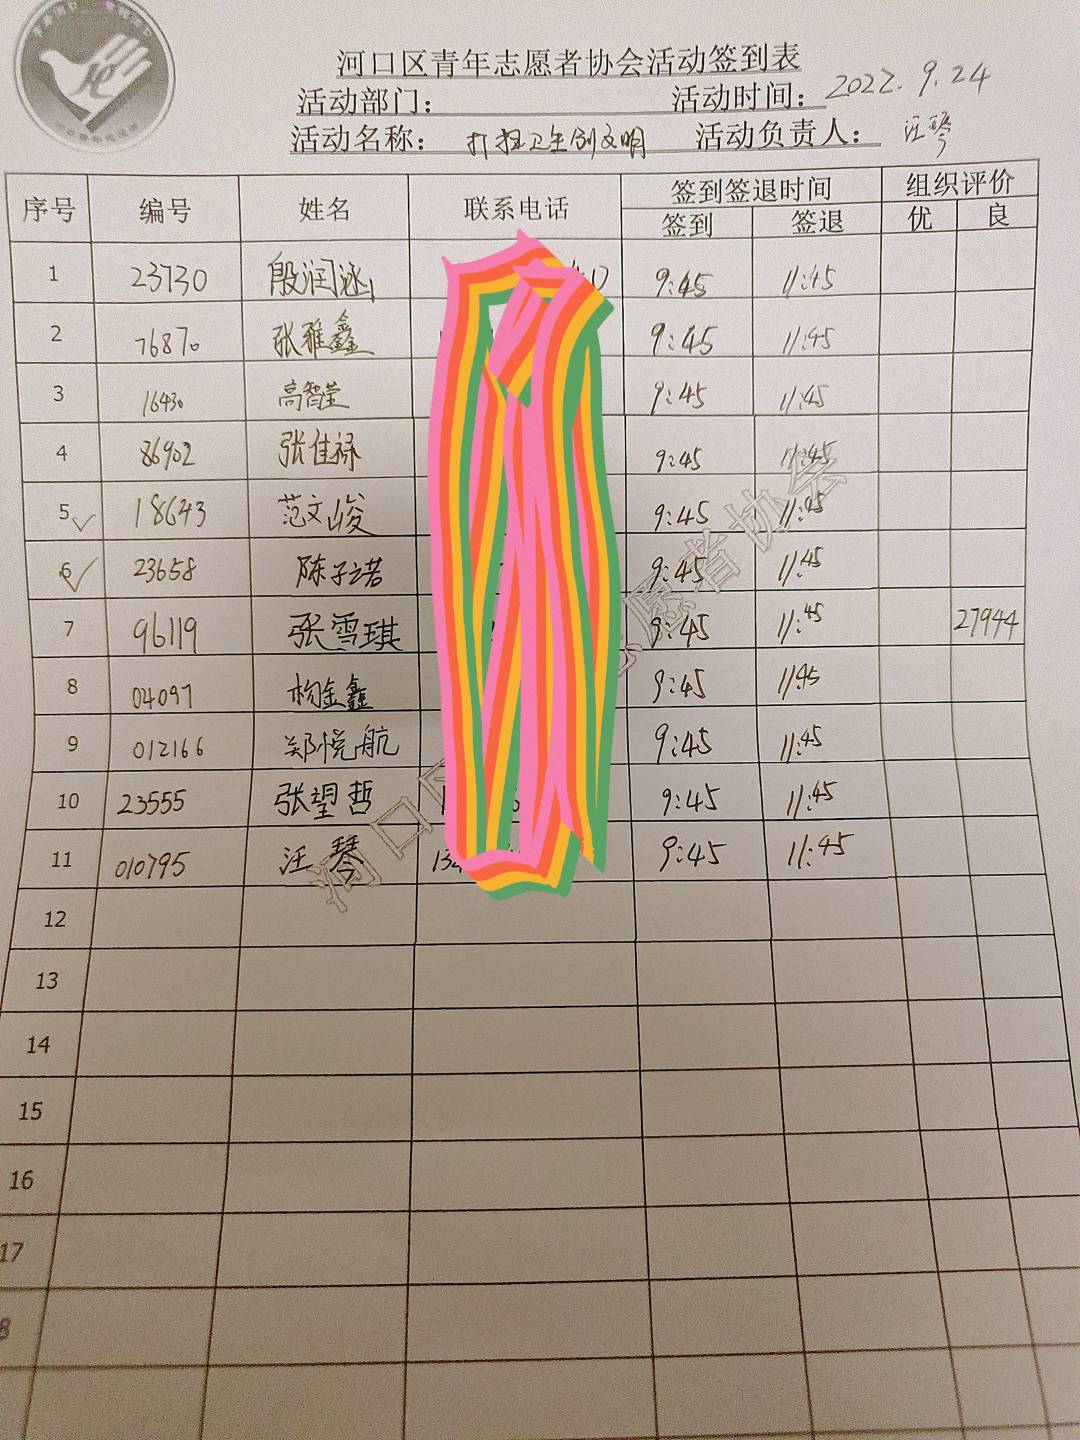 河口区青年志愿者协会活动签到表
活动部门： 活动时间：2022.9.24
活动名称：打扫卫生创文明 活动负责人：汪琴
序号 编号 姓名 联系电话 签到签退时间 组织评价
签到 签退 优 良
1 23730 殷润涵 9:45 11:45
2 76870 张雅鑫 9:45 11:45
3 16430 高智莹 9:45 11:45
4 86902 张佳禄 9:45 11:45
5 18643 范文峻 9:45 11:45
6 23658 陈子诺 9:45 11:45
7 96119 张雪琪 9:45 11:45 27944
8 04097 杨金鑫 9:45 11:45
9 012166 郑悦航 9:45 11:45
10 23555 张望哲 9:45 11:45
11 010795 汪琴 134 9:45 11:45
12
13
14
15
16
17